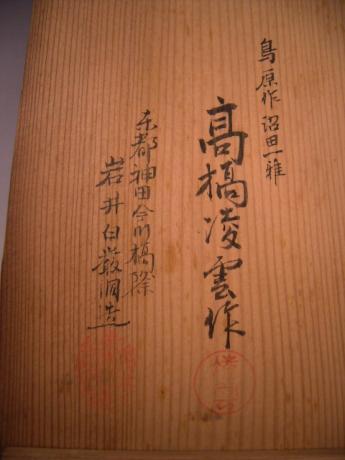 鳥 原作 沼田一雅
高橋凌雲作
东都神田今川橋際
岩井白巌洞造